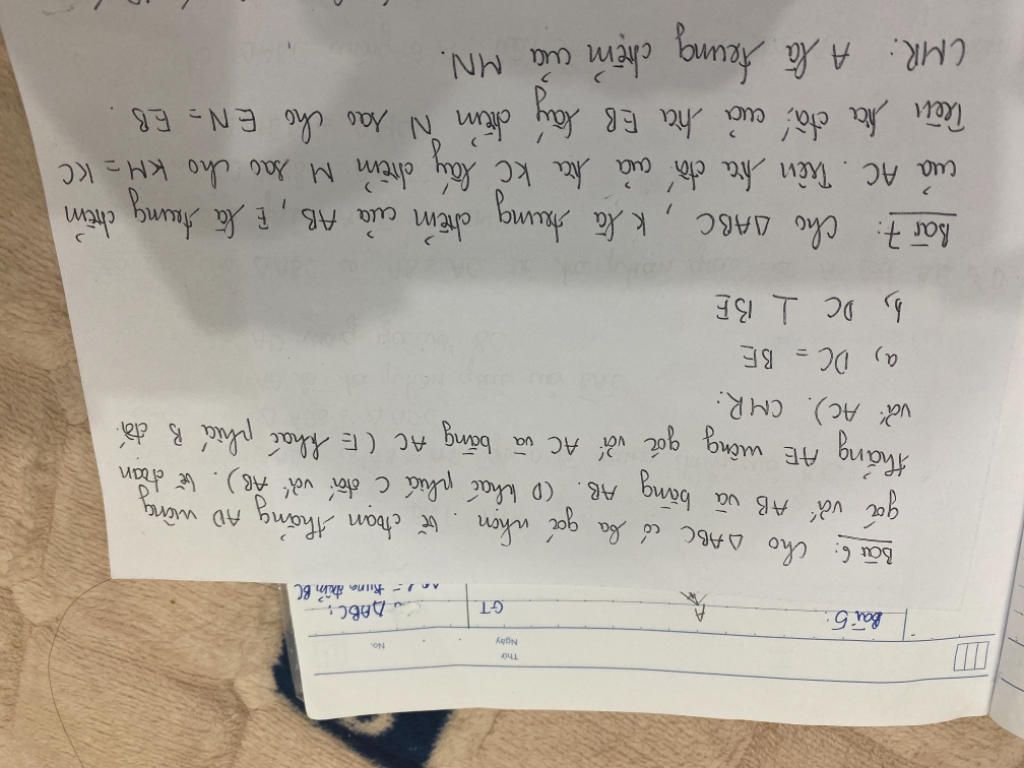 Thứ
Ngày
No.
Bài 5:
A
GT
ΔABC;
trung điểm BC
Bài 6: Cho ΔABC có ba góc nhọn. Vẽ đoạn thẳng AD vuông
góc với AB và bằng AB. (D khác phía C đối với AB). Vẽ đoạn
thẳng AE vuông góc với AC và bằng AC (E khác phía B đối
với AC). CMR:
a, DC = BE
b, DC ⊥ BE
Bài 7: Cho ΔABC, K là trung điểm của AB, E là trung điểm
của AC. Trên tia đối của tia KC lấy điểm M sao cho KM = KC
Trên tia đối của tia EB lấy điểm N sao cho EN = EB.
CMR: A là trung điểm của MN.